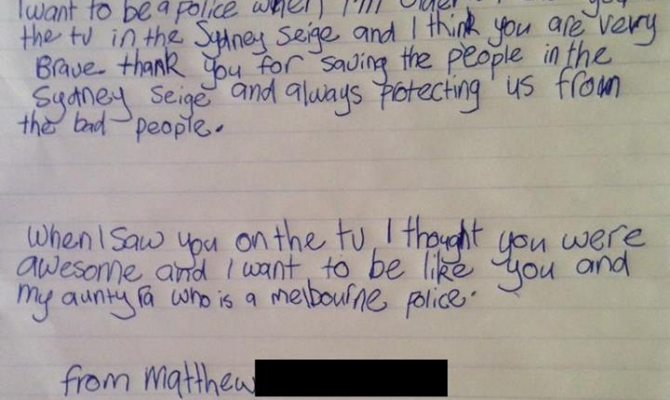 I want to be a police when I'm
the tv in the Sydney Seige and I think you are very
Brave thank you for saving the people in the
Sydney Seige and always protecting us from
the bad people.
When I saw you on the tv I thought you were
awesome and I want to be like you and
my aunty Ra who is a melbourne police.
from Matthew